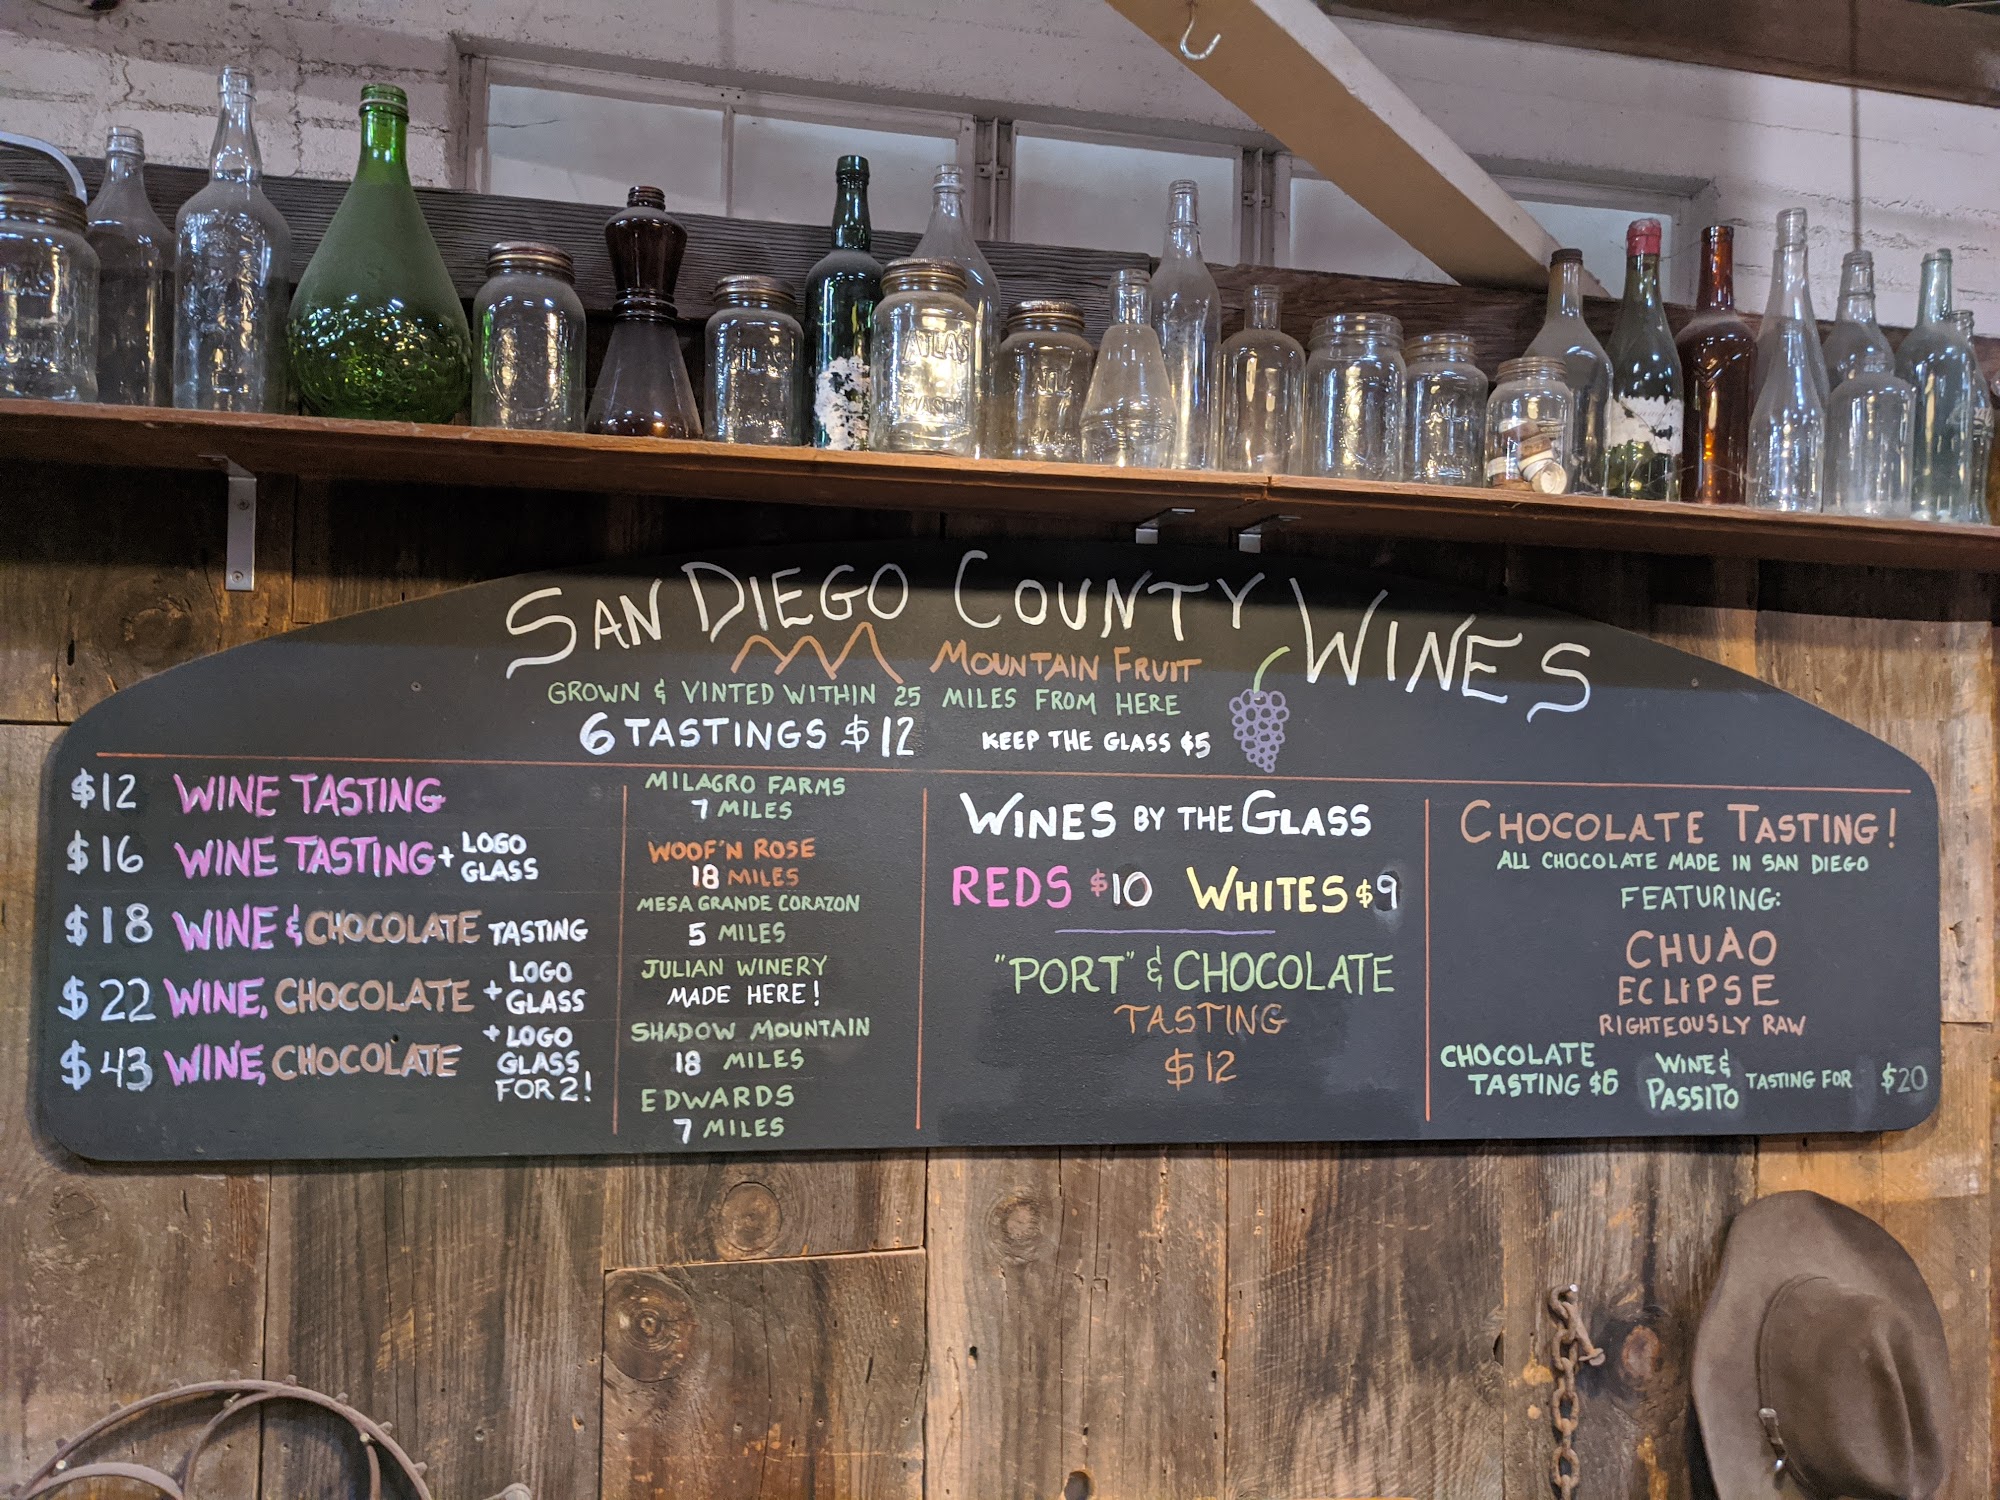 ATLAS
MASON
SAN DIEGO COUNTY WINES
MOUNTAIN FRUIT
GROWN & VINTED WITHIN 25 MILES FROM HERE
6 TASTINGS $12 KEEP THE GLASS $5
$12 WINE TASTING
$16 WINE TASTING + LOGO
GLASS
$18 WINE & CHOCOLATE TASTING
$22 WINE, CHOCOLATE + LOGO
GLASS
$43 WINE, CHOCOLATE + LOGO
GLASS
FOR 2!
MILAGRO FARMS
7 MILES
WOOF'N ROSE
18 MILES
MESA GRANDE CORAZON
5 MILES
JULIAN WINERY
MADE HERE!
SHADOW MOUNTAIN
18 MILES
EDWARDS
7 MILES
WINES BY THE GLASS
REDS $10 WHITES $9
"PORT" & CHOCOLATE
TASTING
$12
CHOCOLATE TASTING!
ALL CHOCOLATE MADE IN SAN DIEGO
FEATURING:
CHUAO
ECLIPSE
RIGHTEOUSLY RAW
CHOCOLATE
TASTING $6
WINE &
PASSITO TASTING FOR $20